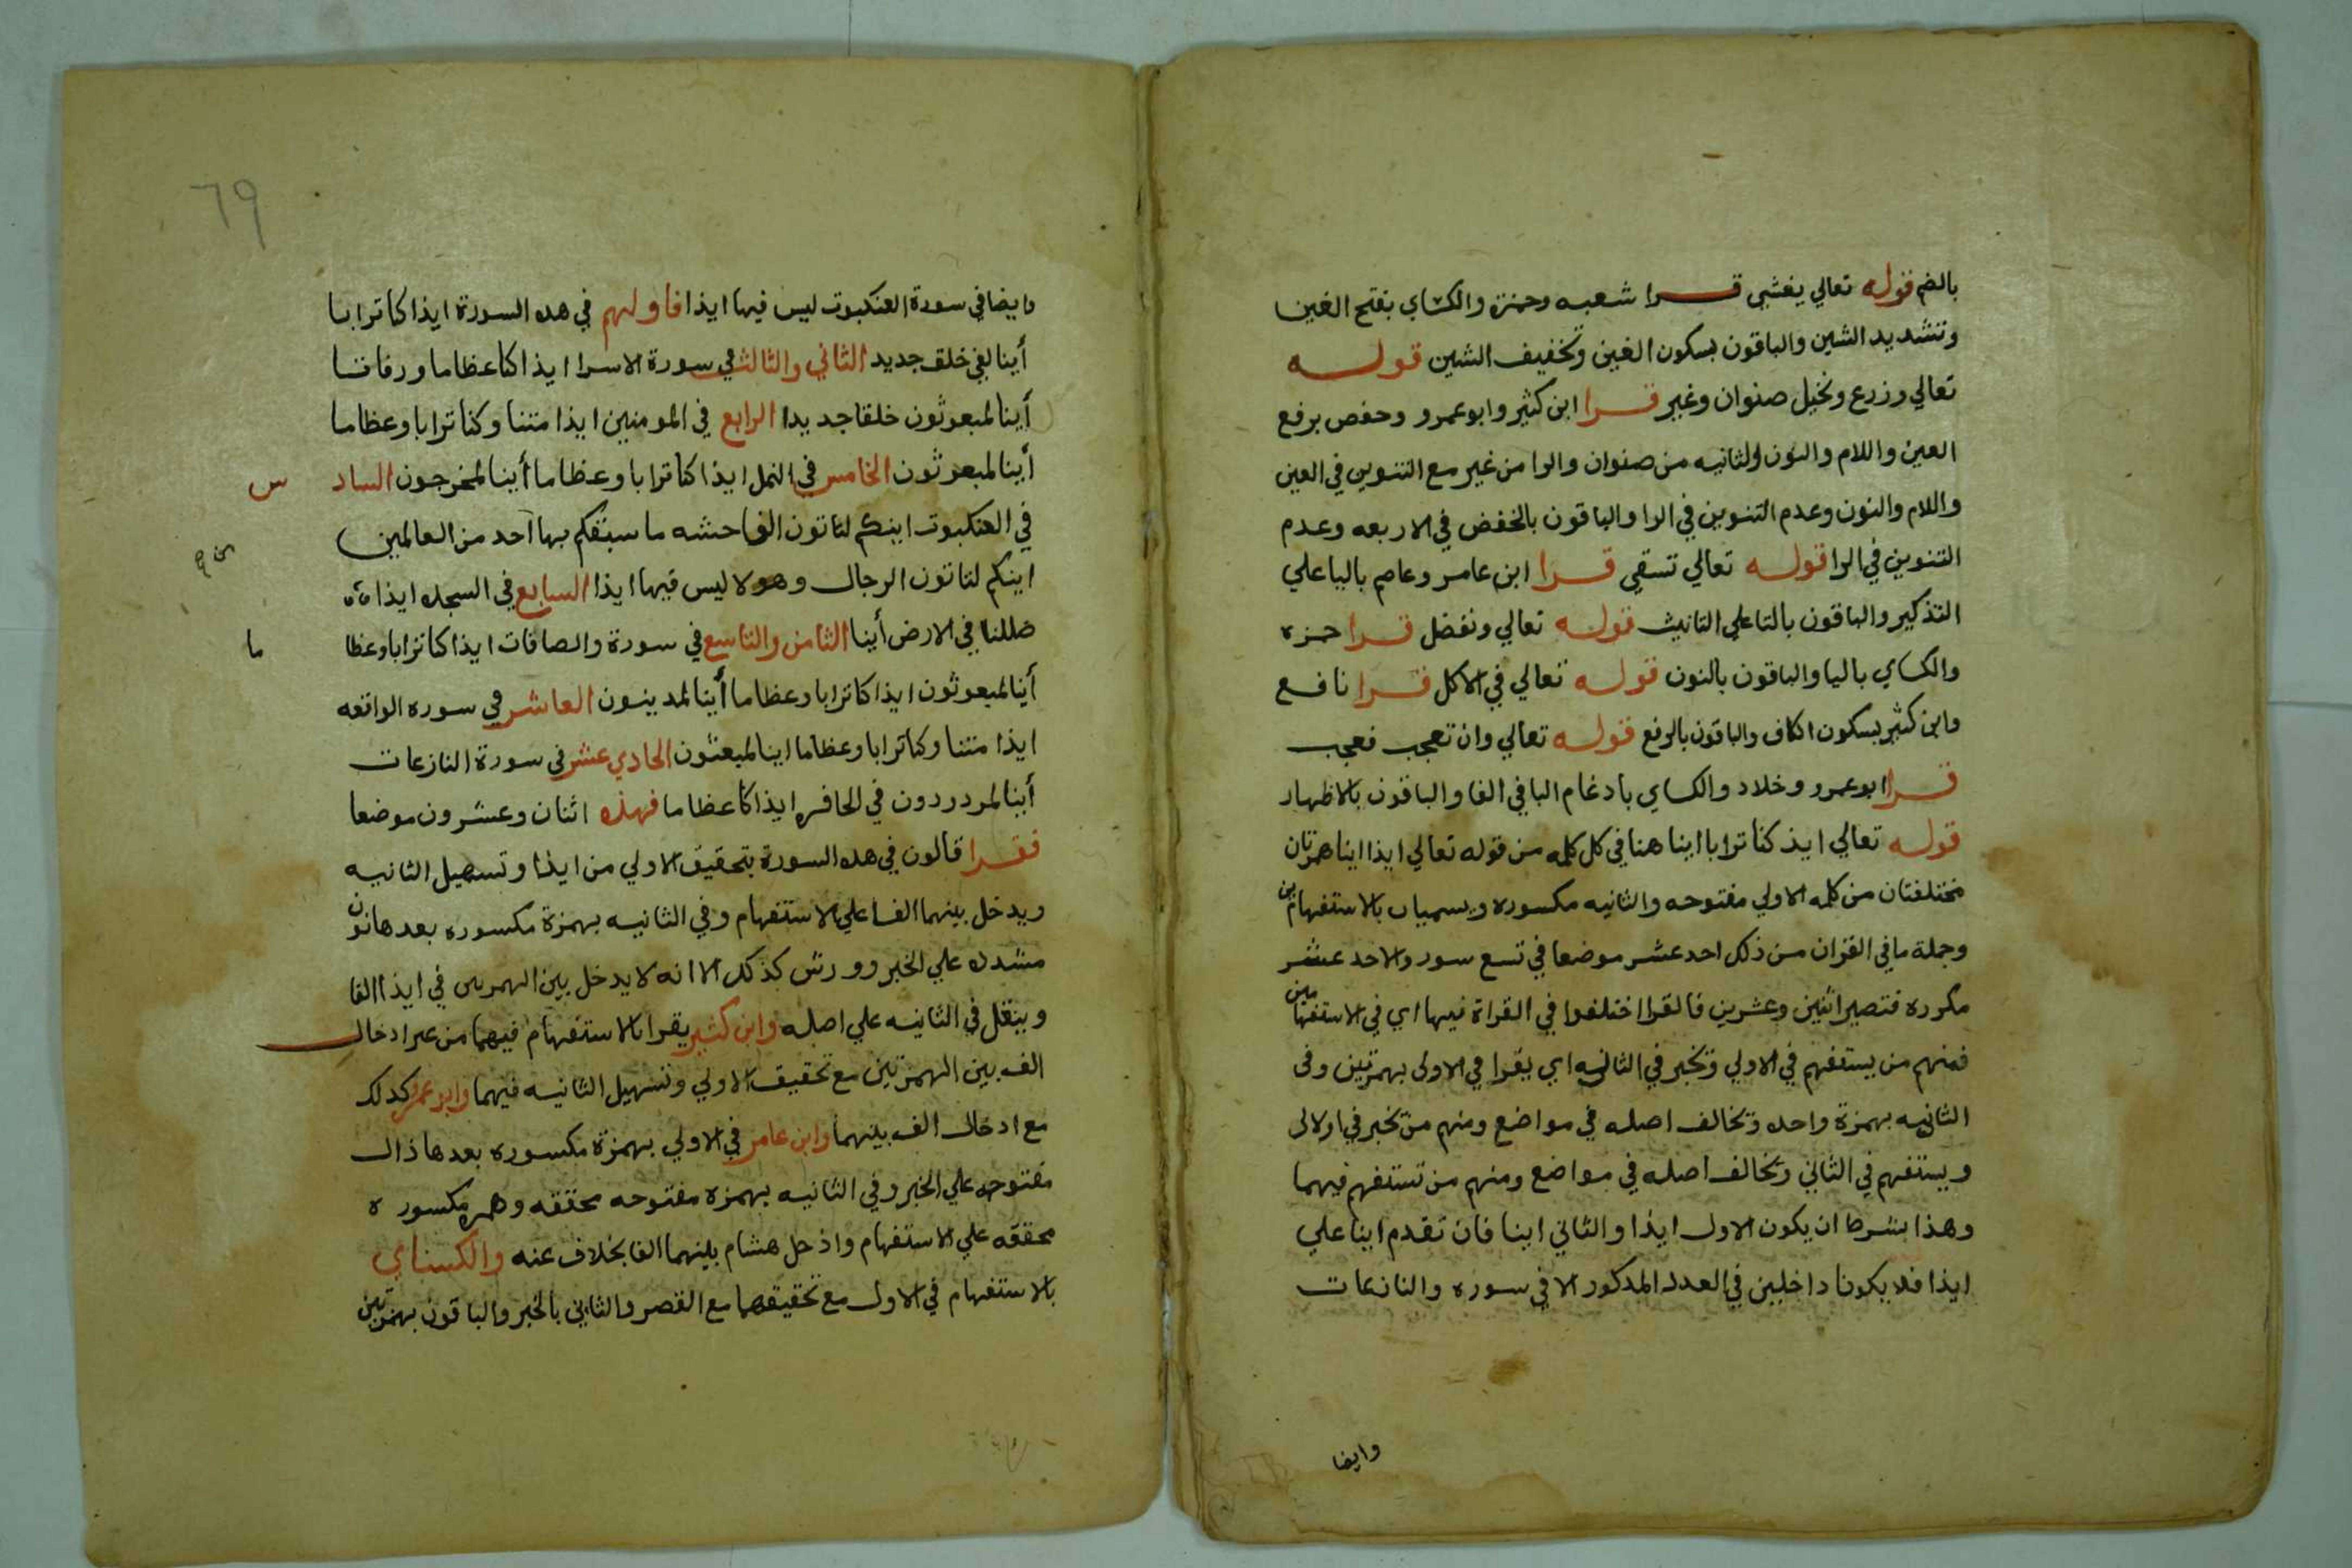 بالضم قوله تعالي يغشي قرا شعبه وحمزة والكساي بفتح الغين
وتشديد الشين والباقون بسكون الغين وتخفيف الشين قوله
تعالي وزرع ونخيل صنوان وغير قرا ابن كثير وابوعمرو وحفص برفع
العين واللام والنون الثانيه من صنوان والرا من غير مع التنوين في العين
واللام والنون وعدم التنوين في الرا والباقون بالخفض في الاربعه وعدم
التنوين في الرا قوله تعالي تسقي قرا ابن عامر وعاصم باليا علي
التذكير والباقون بالتا علي التانيث قوله تعالي ونفضل قرا حمزه
والكساي باليا والباقون بالنون قوله تعالي في الاكل قرا نافع
وابن كثير بسكون الكاف والباقون بالرفع قوله تعالي وان تعجب فعجب
قرا ابوعمرو وخلاد والكساي بادغام البا في الفا والباقون بالاظهار
قوله تعالي ايذ كنا ترابا اينا هنا في كل كلمه من قوله تعالي ايذا اينا همزتان
مختلفتان من كلمه الاولي مفتوحه والثانيه مكسوره ويسميان بالاستفهامين
وجملة ما في القران من ذلك احد عشر موضعا في تسع سور والاحد عشر
مكرره فتصير اثنين وعشرين فالقرا اختلفوا في القراة فيها اي في الاستفهامين
فمنهم من يستفهم في الاولي ويخبر في الثانيه اي يقرا في الاولي بهمزتين وفي
الثانيه بهمزة واحده وتخالف اصله في مواضع ومنهم من يخبر في الاولي
ويستفهم في الثاني ويخالف اصله في مواضع ومنهم من تستفهم فيهما
وهذا بشرط ان يكون الاول ايذا والثاني اينا فان تقدم اينا علي
ايذا فلا يكونا داخلين في العدد المدكور الا في سوره والنازعات
وايضا
٦٩
وايضا في سورة العنكبوت ليس فيها ايذا فاولهم في هده السورة ايذا كنا ترابا
أينا لفي خلق جديد الثاني والثالث في سورة الاسرا ايذا كنا عظاما ورفاتا
أينا لمبعوثون خلقا جديدا الرابع في المومنين ايذا متنا وكنا ترابا وعظاما
أينا لمبعوثون الخامس في النمل ايذا كنا ترابا وعظاما أينا لمخرجون السادس
في العنكبوت اينكم لتاتون الفاحشه ما سبقكم بها احد من العالمين
اينكم لتاتون الرجال وهولا ليس فيها ايذا السابع في السجده ايذا
ضللنا في الارض أينا الثامن والتاسع في سورة والصافات ايذا كنا ترابا وعظاما
أينا لمبعوثون ايذا كنا ترابا وعظاما أينا لمدينون العاشر في سوره الواقعه
ايذا متنا وكنا ترابا وعظاما اينا لمبعثون الحادي عشر في سورة النازعات
أينا لمردردون في الحافره ايذا كنا عظاما فهذه اثنان وعشرون موضعا
فقرا قالون في هده السورة بتحقيق الاولي من ايذا وتسهيل الثانيه
ويدخل بينهما الفا علي الاستفهام وفي الثانيه بهمزة مكسوره بعدها نون
مشدده علي الخبر وورش كذلك الا انه لا يدخل بين الهمزتين في ايذا الفا
وينقل في الثانيه علي اصله وابن كثير يقرا بالاستفهام فيهما من غير ادخال
الف بين الهمزتين مع تحقيق الاولي وتسهيل الثانيه فيهما وابوعمرو كدلك
مع ادخال الف بينهما وابن عامر في الاولي بهمزة مكسوره بعدها ذال
مفتوحه علي الخبر وفي الثانيه بهمزه مفتوحه محققه وهمزه مكسوره
محققه علي الاستفهام وادخل هشام بينهما الفا بخلاف عنه والكسناي
بالاستفهام في الاول مع تحقيقهما مع القصر والثاني بالخبر والباقون بهمزتين